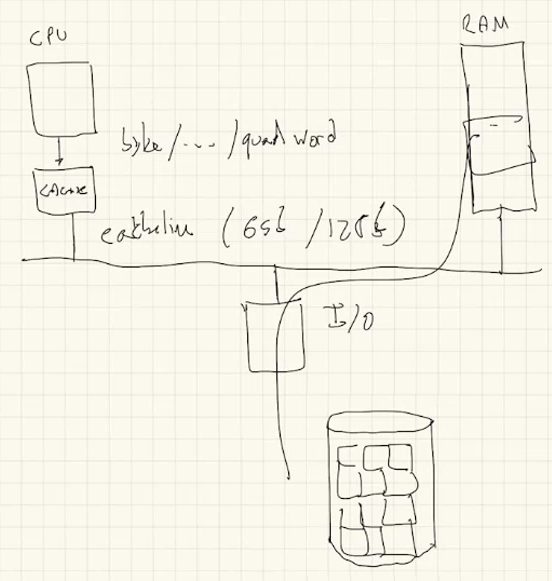 CPU
RAM
byte/.../quad word
cache
cacheline (64b/128b)
I/O